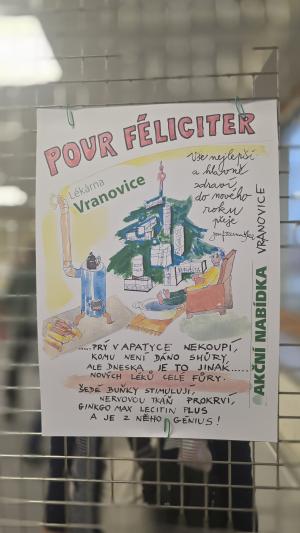 POUR FÉLICITER
Lékárna
Vranovice
Vše nejlepší
a hlavně
zdraví,
do nového
roku
přeje
AKČNÍ NABÍDKA VRANOVICE
.....PRÝ V APATYCE NEKOUPÍ,
KOMU NENÍ DÁNO SHŮRY,
ALE DNESKA JE TO JINAK.....
NOVÝCH LÉKŮ CELÉ FŮRY.
ŠEDÉ BUŇKY STIMULUJÍ,
NERVOVOU TKÁŇ PROKRVÍ,
GINKGO MAX LECITIN PLUS
A JE Z NĚHO GÉNIUS!